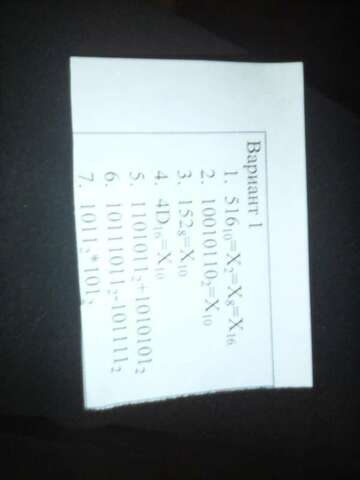 Вариант 1
1. 516₁₀=X₂=X₈=X₁₆
2. 10010110₂=X₁₀
3. 152₈=X₁₀
4. 4D₁₆=X₁₀
5. 1101011₂+1010101₂
6. 10111011₂-101111₂
7. 1011₂*101₂